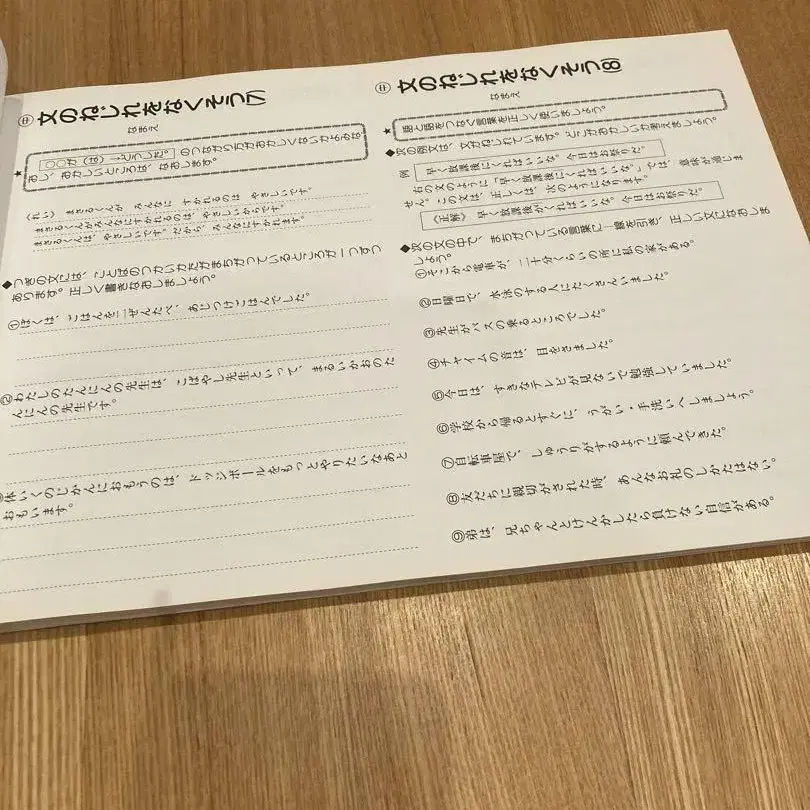 ㊥ 文のねじれをなくそう(7)
なまえ
★ ○○が(は)→どうした。 のつながり方がおかしくないかよみな
おし、おかしいところは、なおします。
《れい》 まさるくんが みんなに すかれるのは やさしいです。
まさるくんがみんなにすかれるのは、やさしいからです。
まさるくんは、やさしいです。だから、みんなにすかれます。
◆つぎの文には、ことばのつかいかたがまちがっているところが一つずつ
あります。正しく書きなおしましょう。
①ぼくは、ごはんを一ぜんたべ、あじつけごはんでした。
②わたしのたんにんの先生は、こばやし先生といって、まるいがおのた
んにんの先生です。
体いくのじかんにおもうのは、ドッジボールをもっとやりたいなあと
おもいます。
㊥ 文のねじれをなくそう(8)
なまえ
★ 語と語をつなぐ言葉を正しく使いましょう。
◆次の例文は、文がねじれています。どこがおかしいか考えましょう。
例 早く放課後にくればいいな。今日はお祭りだ。
右の文のように「早く放課後にくればいいな。」では、意味が通じま
せん。この文は、正しくは、次のようになります。
《正解》 早く放課後がくればいいな。今日はお祭りだ。
◆次の文の中で、まちがっている言葉に―線を引き、正しい文になおしま
しょう。
①そこから電車が、二十分くらいの所に私の家がある。
②日曜日で、水泳のする人にたくさんいました。
③先生がバスの乗るところでした。
④チャイムの音は、目をさました。
⑤今日は、すきなテレビが見ないで勉強していました。
⑥学校から帰るとすぐに、うがい・手洗いへしましょう。
⑦自転車屋で、しゅうりがするように頼んできた。
⑧友だちに親切がされた時、あんなお礼のしかたはない。
⑨弟は、兄ちゃんとけんかしたら負けない自信がある。